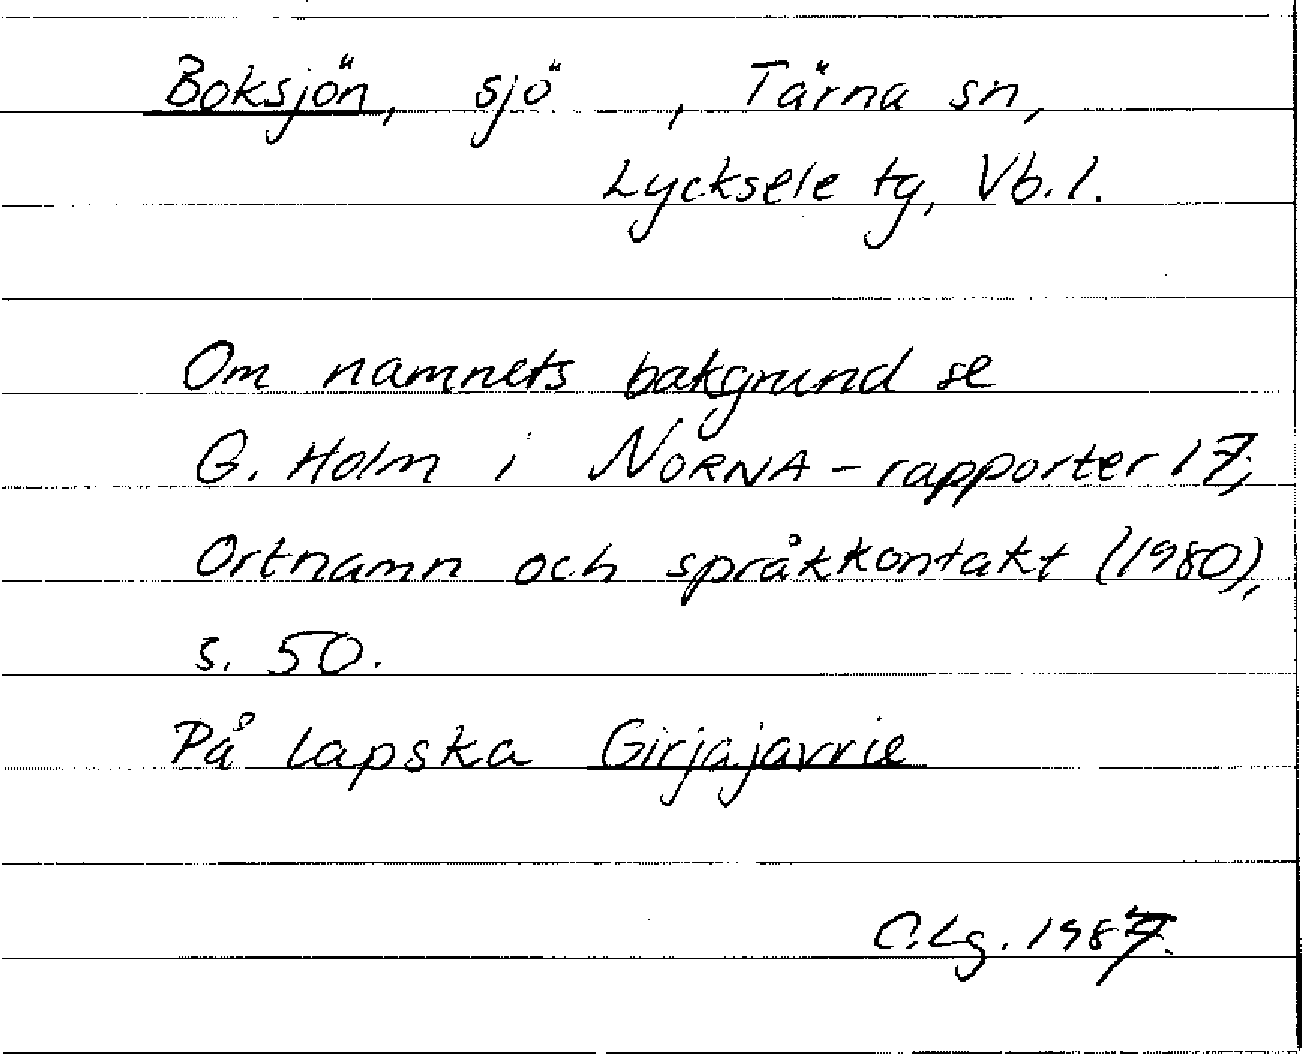 Boksjön, sjö , Tärna sn,
Lycksele tg, Vb. l.
Om namnets bakgrund se
G. Holm i NORNA-rapporter 17,
Ortnamn och språkkontakt (1980),
s. 50.
På lapska Girjajavrie
C.Lg. 1987.